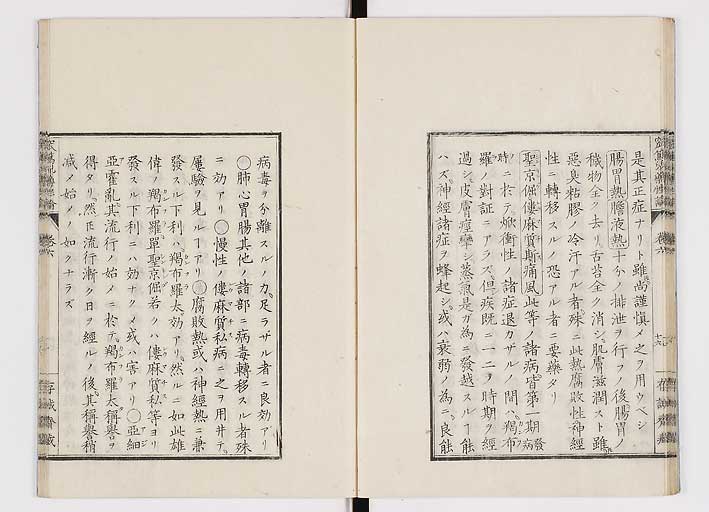 是其正症ナリト雖尚謹慎メ之ヲ用ウベシ
腸胃熱膽液熱十分ノ排泄ヲ行フノ後腸胃ノ
穢物全ク去リ舌苔全ク消シ肌膚滋潤スト雖
惡臭粘膠ノ冷汗アル者殊ニ此熱腐敗性神經
性ニ轉移スルノ恐アル者ニ要藥タリ
聖京倔僂麻質斯痛風此等ノ諸病皆第一期發病
時ニ於テ焮衝性ノ諸症退カザルノ間ハ羯布
羅ノ對証ニアラズ但疾既ニ一二ヲ時期ヲ經
過シ皮膚痙攣シ蒸氣是ガ為ニ發越スルヿ能
ハズ神經諸症ヲ蜂起シ或ハ衰弱ノ為ニ良能
病毒ヲ分離スルノ力足ラザル者ニ良効アリ
〇肺心胃腸其他ノ諸部ニ病毒轉移スル者殊
ニ効アリ〇慢性ノ僂麻質私病ニ之ヲ用并テ
屢驗ヲ見ルヿアリ〇腐敗熱或ハ神經熱ニ兼
發スル下利ハ羯布羅太効アリ然ルニ如此雄
偉ノ羯布羅單聖京倔若クハ僂麻質私等ヨリ
發スル下利ニハ効ナク〆或ハ害アリ〇亞細
亞霍亂其流行ノ始メニ於テ羯布羅太稱譽ヲ
得タリ然正流行漸ク日ヲ經ルノ後其稱譽稍
減〆始ノ如クナラズ
卷六
卷六